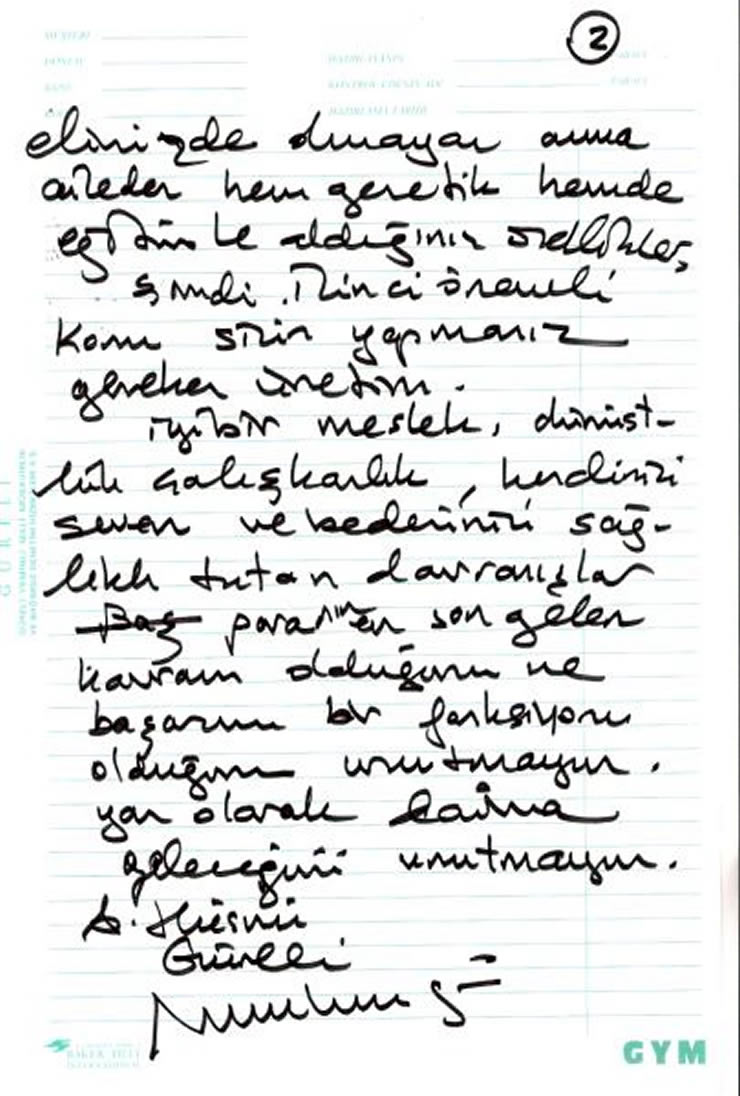 2
elinizde olmayan ama
aileden hem genetik hemde
eğitimle aldığınız özellikler,
şimdi. ikinci önemli
konu sizin yapmanız
gereken üretim.
iyi bir meslek, dürüst-
lük çalışkanlık, kendinizi
seven ve bedeninizi sağ-
lıklı tutan davranışlar
Baş paranın en son gelen
kavram olduğunu ve
başarının bir fonksiyonu
olduğunu unutmayın.
yan olarak daima
geleceğini unutmayın.
A. Hüsnü
Gürelli
GÜRELİ
GYM